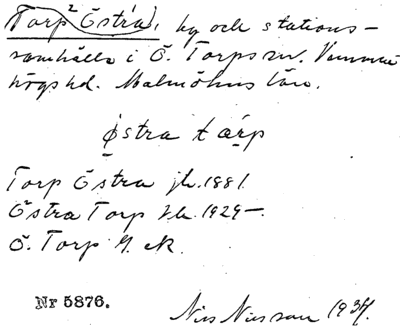 Torp 2 Östra, by och stations-
samhälle i Ö. Torps sn. Vemmen
högs hd. Malmöhus län.
østra tarp
Torp Östra jb. 1881.
Östra Torp Jb. 1929-.
Ö. Torp G. ek.
Nr 5876. Nils Nilsson 1937.